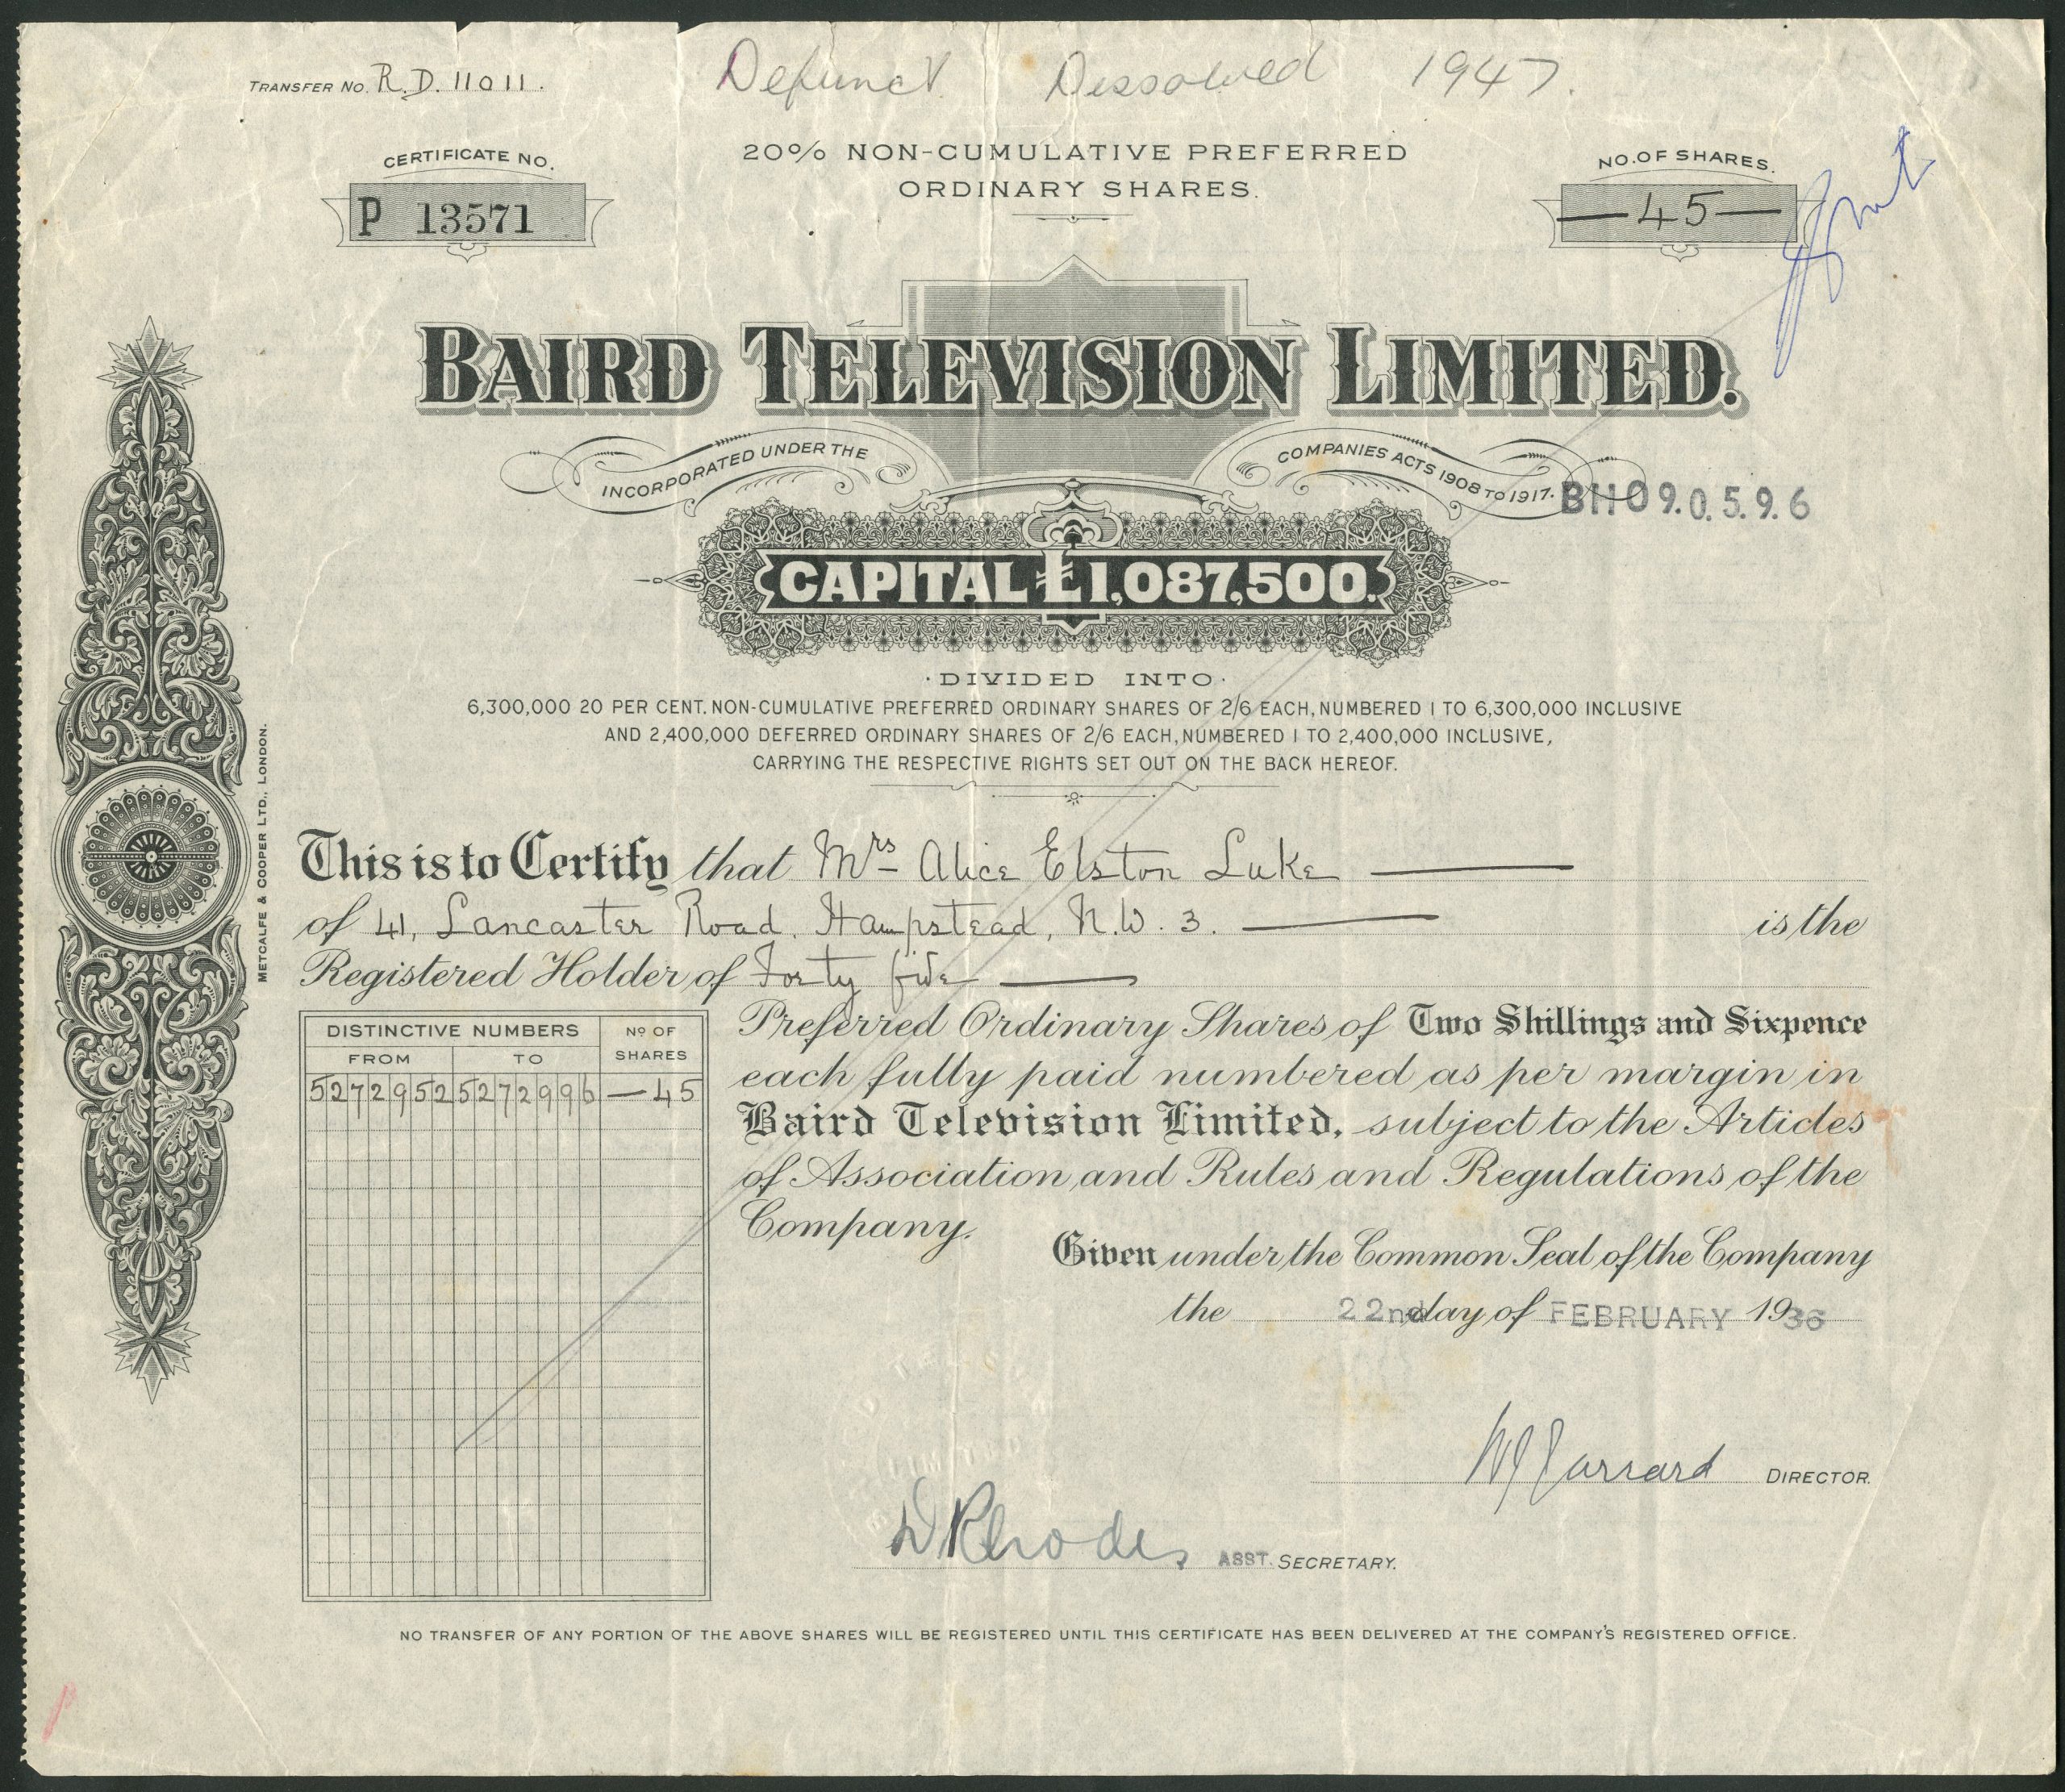 Defunct Dissolved 1947.
TRANSFER NO. R.D. 11011.
CERTIFICATE NO.
P 13571
20% NON-CUMULATIVE PREFERRED
ORDINARY SHARES.
NO. OF SHARES.
—45—
BAIRD TELEVISION LIMITED.
INCORPORATED UNDER THE COMPANIES ACTS 1908 TO 1917.
BHO9.0.5.9.6
CAPITAL £1,087,500.
·DIVIDED INTO·
6,300,000 20 PER CENT. NON-CUMULATIVE PREFERRED ORDINARY SHARES OF 2/6 EACH, NUMBERED 1 TO 6,300,000 INCLUSIVE
AND 2,400,000 DEFERRED ORDINARY SHARES OF 2/6 EACH, NUMBERED 1 TO 2,400,000 INCLUSIVE,
CARRYING THE RESPECTIVE RIGHTS SET OUT ON THE BACK HEREOF.
METCALFE & COOPER LTD., LONDON.
This is to Certify that Mrs Alice Elston Luke
of 41, Lancaster Road, Hampstead, N.W. 3. is the
Registered Holder of Forty five
DISTINCTIVE NUMBERS
FROM TO
No OF SHARES
5272952 5272996 —45
Preferred Ordinary Shares of Two Shillings and Sixpence
each fully paid numbered as per margin in
Baird Television Limited, subject to the Articles
of Association and Rules and Regulations of the
Company.
Given under the Common Seal of the Company
the 22nd day of FEBRUARY 1936
W Jarrard DIRECTOR.
D Rhodes ASST. SECRETARY.
NO TRANSFER OF ANY PORTION OF THE ABOVE SHARES WILL BE REGISTERED UNTIL THIS CERTIFICATE HAS BEEN DELIVERED AT THE COMPANY'S REGISTERED OFFICE.